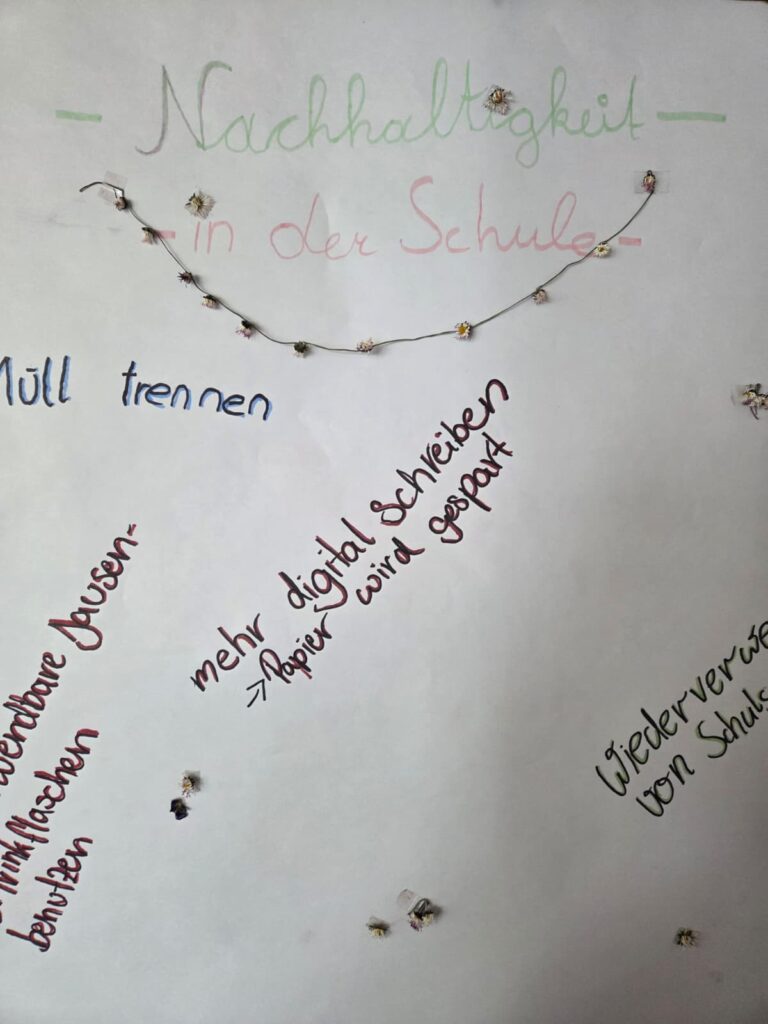 - Nachhaltigkeit -
- in der Schule -
Müll trennen
mehr digital schreiben
=> Papier wird gespart
wendbare Jausen-
Trinkflaschen
benutzen
Wiederverwe
von Schuls